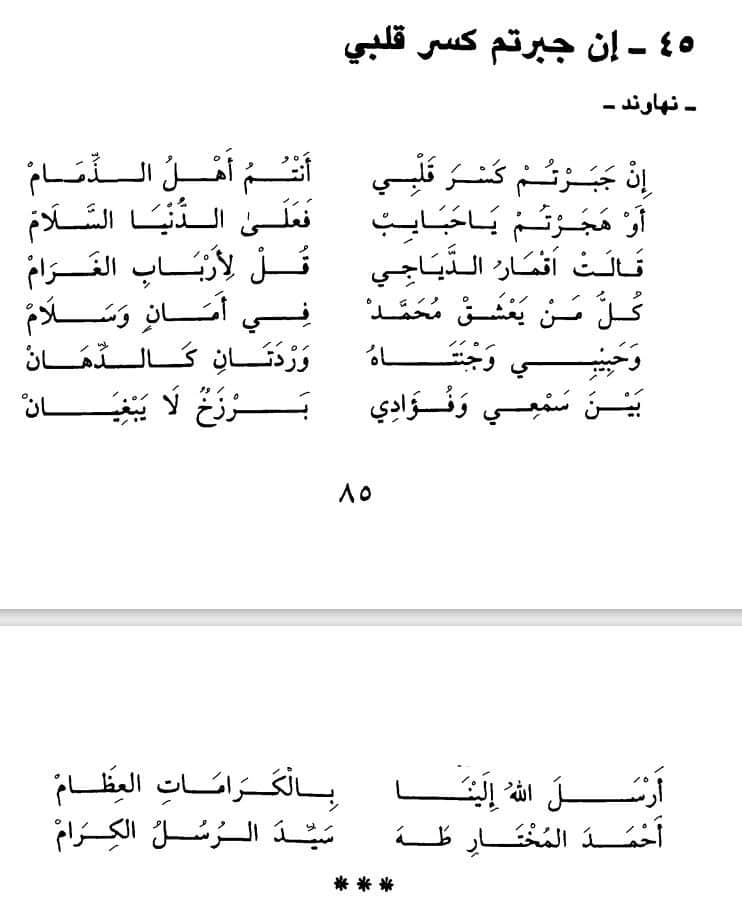 ٤٥ ـ إن جبرتم كسر قلبي
ـ نهاوند ـ
إِنْ جَبَرْتُمْ كَسْرَ قَلْبِي أَنْتُمُ أَهْلُ الذِّمَامْ
أَوْ هَجَرْتُمْ يَاحَبَايِبْ فَعَلَىٰ الدُّنْيَا السَّلَامْ
قَالَتْ اَقْمَارُ الدَّيَاجِي قُلْ لِأَرْبَابِ الغَرَامْ
كُلُّ مَنْ يَعْشَقْ مُحَمَّدْ فِي أَمَانٍ وَسَلَامْ
وَحَبِيْبِي وَجْنَتَاهُ وَرْدَتَانِ كَالدِّهَانْ
بَيْنَ سَمْعِي وَفُؤَادِي بَرْزَخٌ لَا يَبْغِيَانْ
٨٥
أَرْسَلَ اللهُ إِلَيْنَا بِالْكَرَامَاتِ العِظَامْ
أَحْمَدَ المُخْتَارِ طَهَ سَيِّدَ الرُسُلُ الكِرَامْ
***